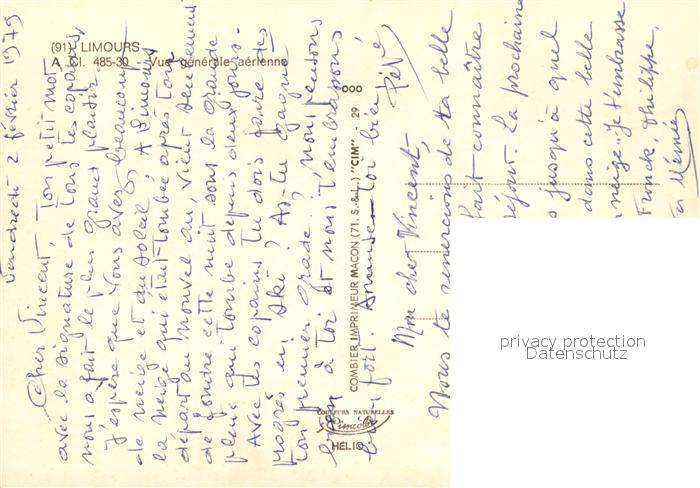 (91) LIMOURS
A Cl. 485-30 - Vue générale aérienne
Vendredi 2 février 1979
Cher Vincent, Ton petit mot
avec la signature de tous tes copains,
nous a fait le plus grand plaisir.
J'espère que vous avez beaucoup
de neige et du soleil. A Limours
la neige qui était tombée après ton
départ au nouvel an, vient seulement
de fondre cette nuit sous la grande
pluie qui tombe depuis deux jours.
Avec tes copains tu dois faire des
progrès en ski ? As-tu gagné
ton premier grade ? nous pensons
bien à toi et nous t'embrassons,
bien fort. Amuse-toi bien !
Pépé
COMBIER IMPRIMEUR MACON (71. S.-&-L.) "CIM"
29
COULEURS NATURELLES
Cimcolor
HELIO
Mon cher Vincent,
Nous te remercions de ta belle
fait connaître
séjour. La prochaine
jusqu'à quel
dans cette belle
neige.. Je t'embrasse
Franck, Philippe,
Mémé
privacy protection
Datenschutz